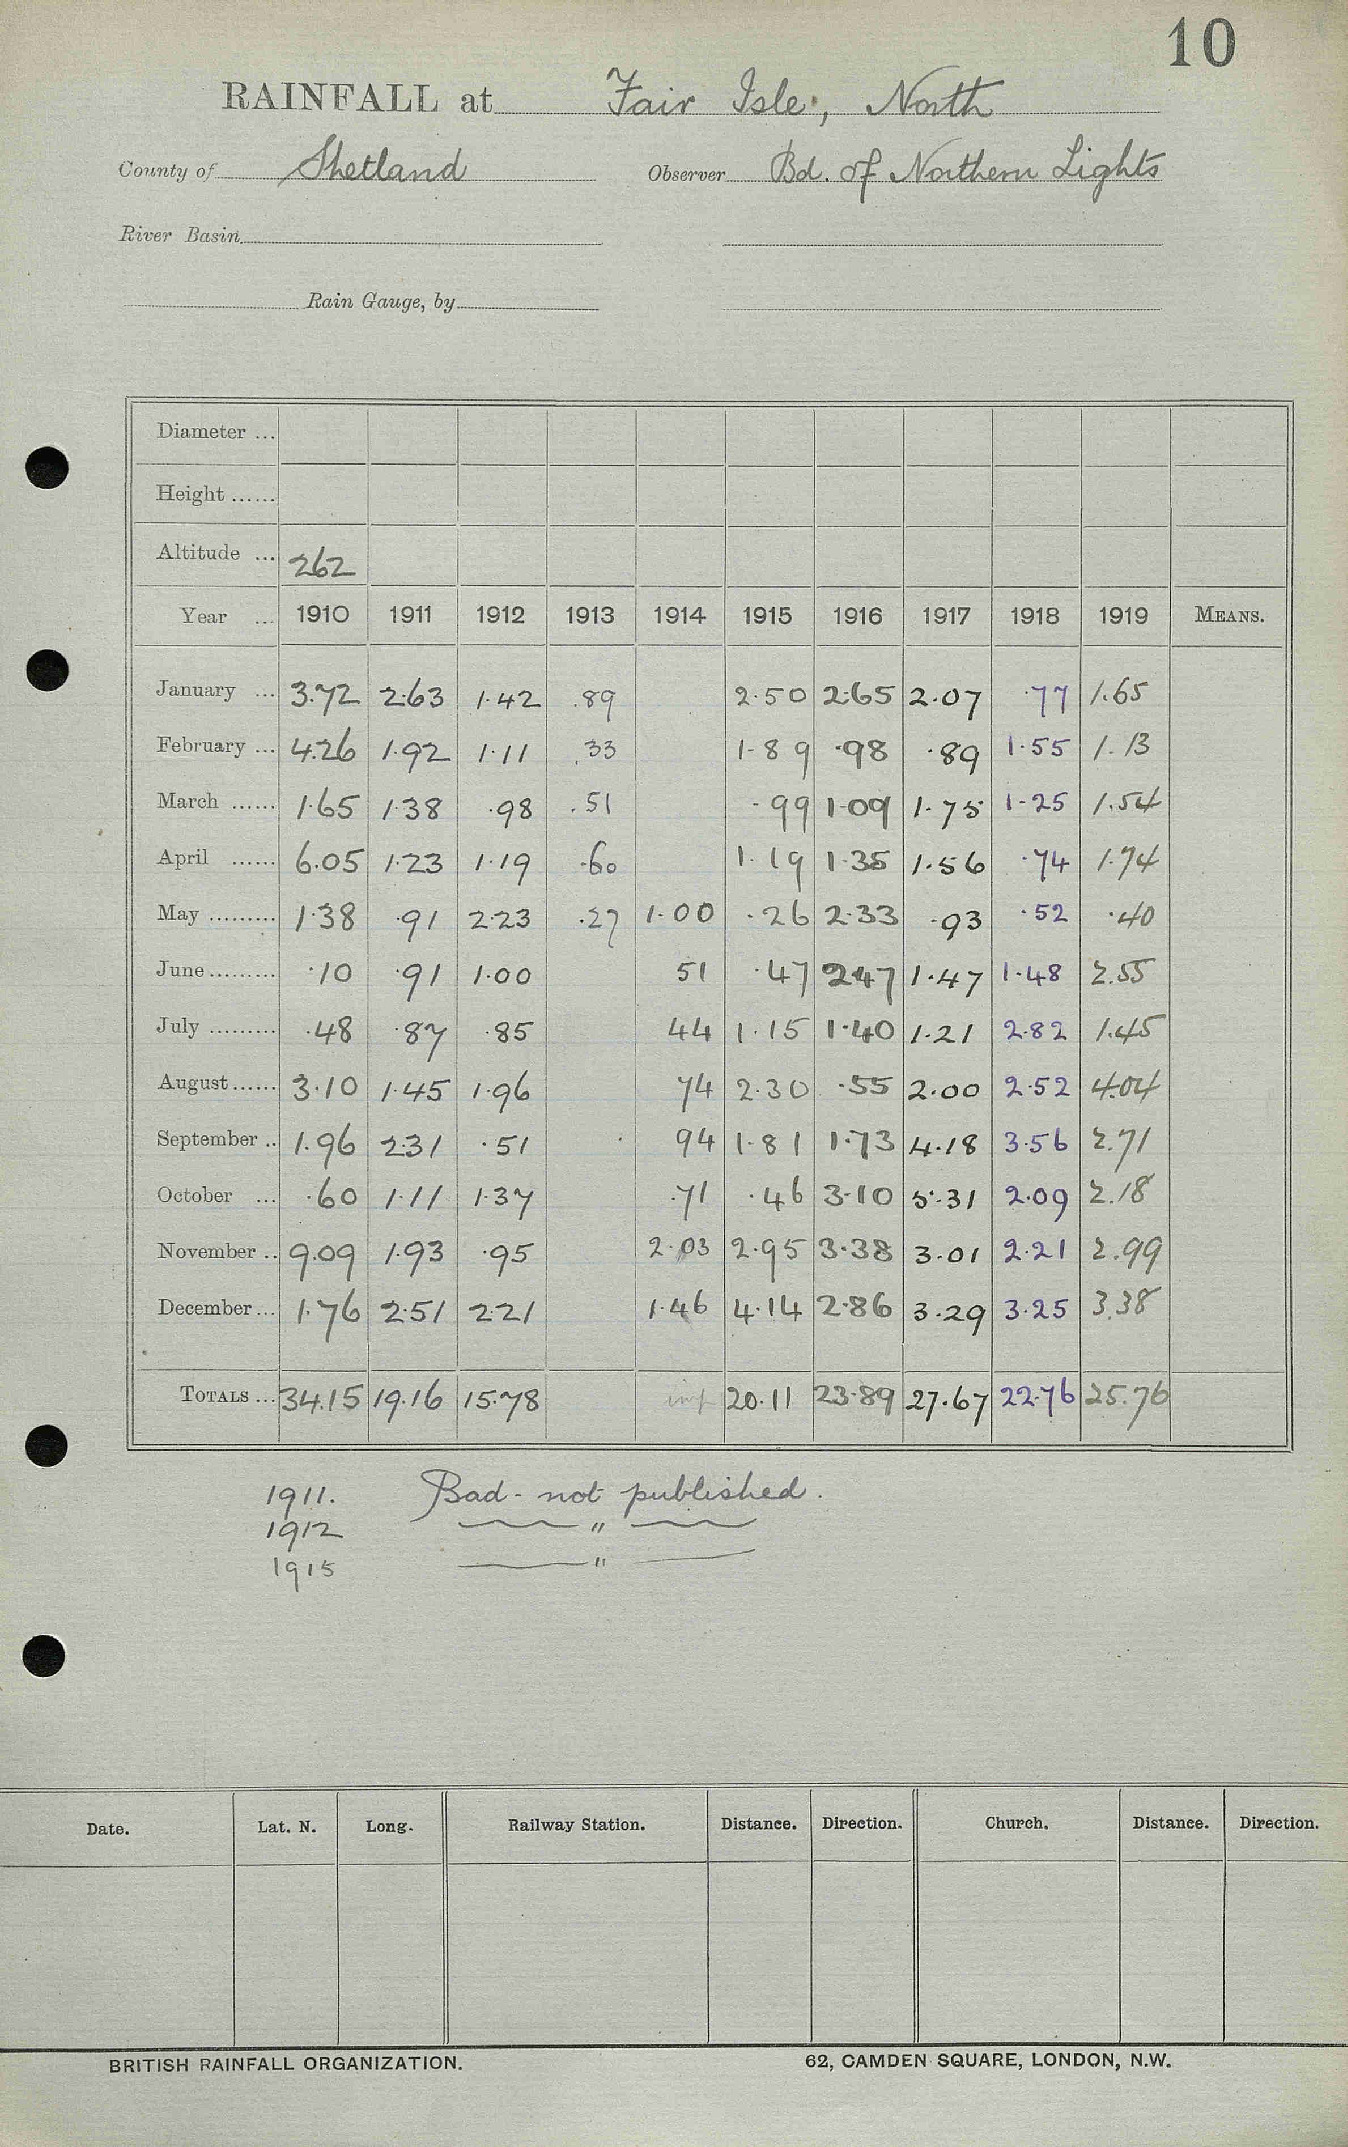 10
RAINFALL at Fair Isle, North
County of Shetland Observer Bd. of Northern Lights
River Basin
Rain Gauge, by
Diameter ...
Height ......
Altitude ... 262
Year ... 1910 1911 1912 1913 1914 1915 1916 1917 1918 1919 MEANS.
January ... 3.72 2.63 1.42 .89 2.50 2.65 2.07 .77 1.65
February ... 4.26 1.92 1.11 .33 1.89 .98 .89 1.55 1.13
March ...... 1.65 1.38 .98 .51 .99 1.09 1.75 1.25 1.54
April ...... 6.05 1.23 1.19 .60 1.19 1.35 1.56 .74 1.74
May ......... 1.38 .91 2.23 .27 1.00 .26 2.33 .93 .52 .40
June ......... .10 .91 1.00 51 .47 2.47 1.47 1.48 2.55
July ......... .48 .87 .85 44 1.15 1.40 1.21 2.82 1.45
August ...... 3.10 1.45 1.96 74 2.30 .55 2.00 2.52 4.04
September .. 1.96 2.31 .51 94 1.81 1.73 4.18 3.56 2.71
October ... .60 1.11 1.37 .71 .46 3.10 5.31 2.09 2.18
November .. 9.09 1.93 .95 2.03 2.95 3.38 3.01 2.21 2.99
December ... 1.76 2.51 2.21 1.46 4.14 2.86 3.29 3.25 3.38
TOTALS ... 34.15 19.16 15.78 imp 20.11 23.89 27.67 22.76 25.76
1911. Bad - not published.
1912 "
1915 "
Date. Lat. N. Long. Railway Station. Distance. Direction. Church. Distance. Direction.
BRITISH RAINFALL ORGANIZATION. 62, CAMDEN SQUARE, LONDON, N.W.